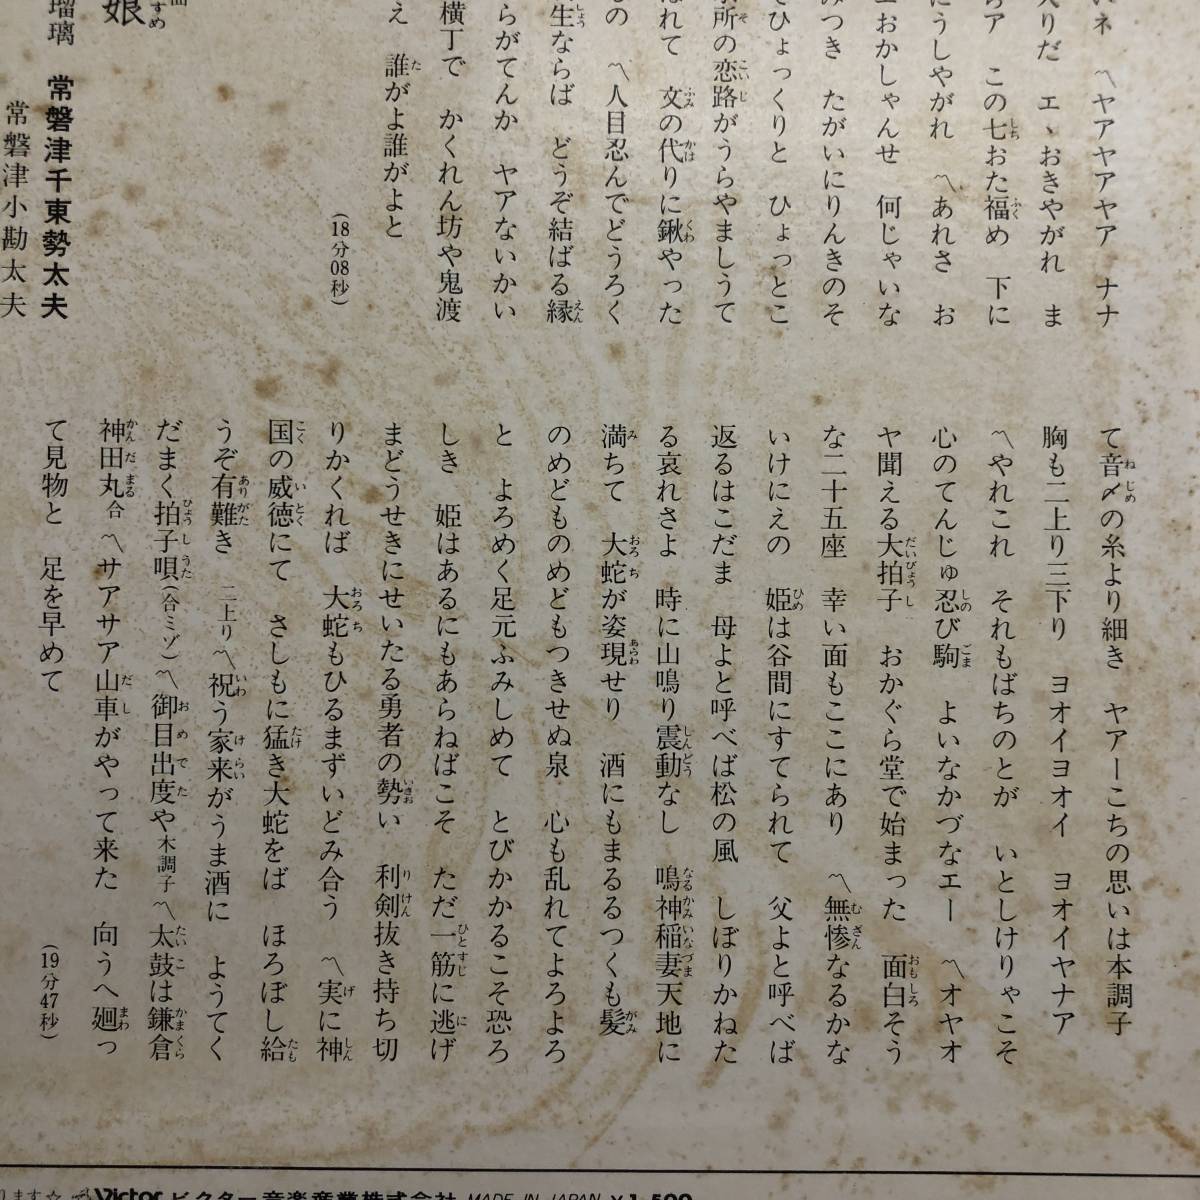 ネ 〽ヤアヤアヤア ナナ
入りだ エヽおきやがれ ま
らア この七おた福め 下に
にうしやがれ 〽あれさ お
エおかしゃんせ 何じゃいな
みつき たがいにりんきのそ
そひょっくりと ひょっとこ
所の恋路がうらやましうて
ばれて 文の代りに鍬やった
もの 〽人目忍んでどうろく
生ならば どうぞ結ばる縁
らがてんか ヤアないかい
横丁で かくれん坊や鬼渡
え 誰がよ誰がよと
(18分08秒)
娘
瑠璃 常磐津千東勢太夫
常磐津小勘太夫
て音〆の糸より細き ヤアーこちの思いは本調子
胸も二上り三下り ヨオイヨオイ ヨオイヤナア
〽やれこれ それもばちのとが いとしけりゃこそ
心のてんじゅ忍び駒 よいなかづなエー 〽オヤオ
ヤ聞える大拍子 おかぐら堂で始まった 面白そう
な二十五座 幸い面もここにあり 〽無惨なるかな
いけにえの 姫は谷間にすてられて 父よと呼べば
返るはこだま 母よと呼べば松の風 しぼりかねた
る哀れさよ 時に山鳴り震動なし 鳴神稲妻天地に
満ちて 大蛇が姿現せり 酒にもまるるつくも髪
のめどものめどもつきせぬ泉 心も乱れてよろよろ
と よろめく足元ふみしめて とびかかるこそ恐ろ
しき 姫はあるにもあらねばこそ ただ一筋に逃げ
まどうせきにせいたる勇者の勢い 利剣抜き持ち切
りかくれば 大蛇もひるまずいどみ合う 〽実に神
国の威徳にて さしもに猛き大蛇をば ほろぼし給
うぞ有難き 二上り〽祝う家来がうま酒に ようてく
だまく拍子唄(合ミゾ)〽御目出度や木調子〽太鼓は鎌倉
神田丸合 〽サアサア山車がやって来た 向うへ廻っ
て見物と 足を早めて
(19分47秒)
ります☆ Victor ビクター音楽産業株式会社 MADE IN JAPAN ¥1,500